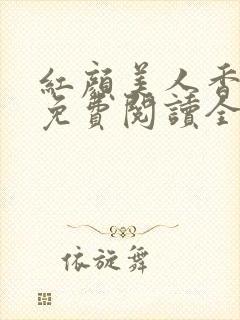 紅顏美人香
免費閱讀全
依旋舞